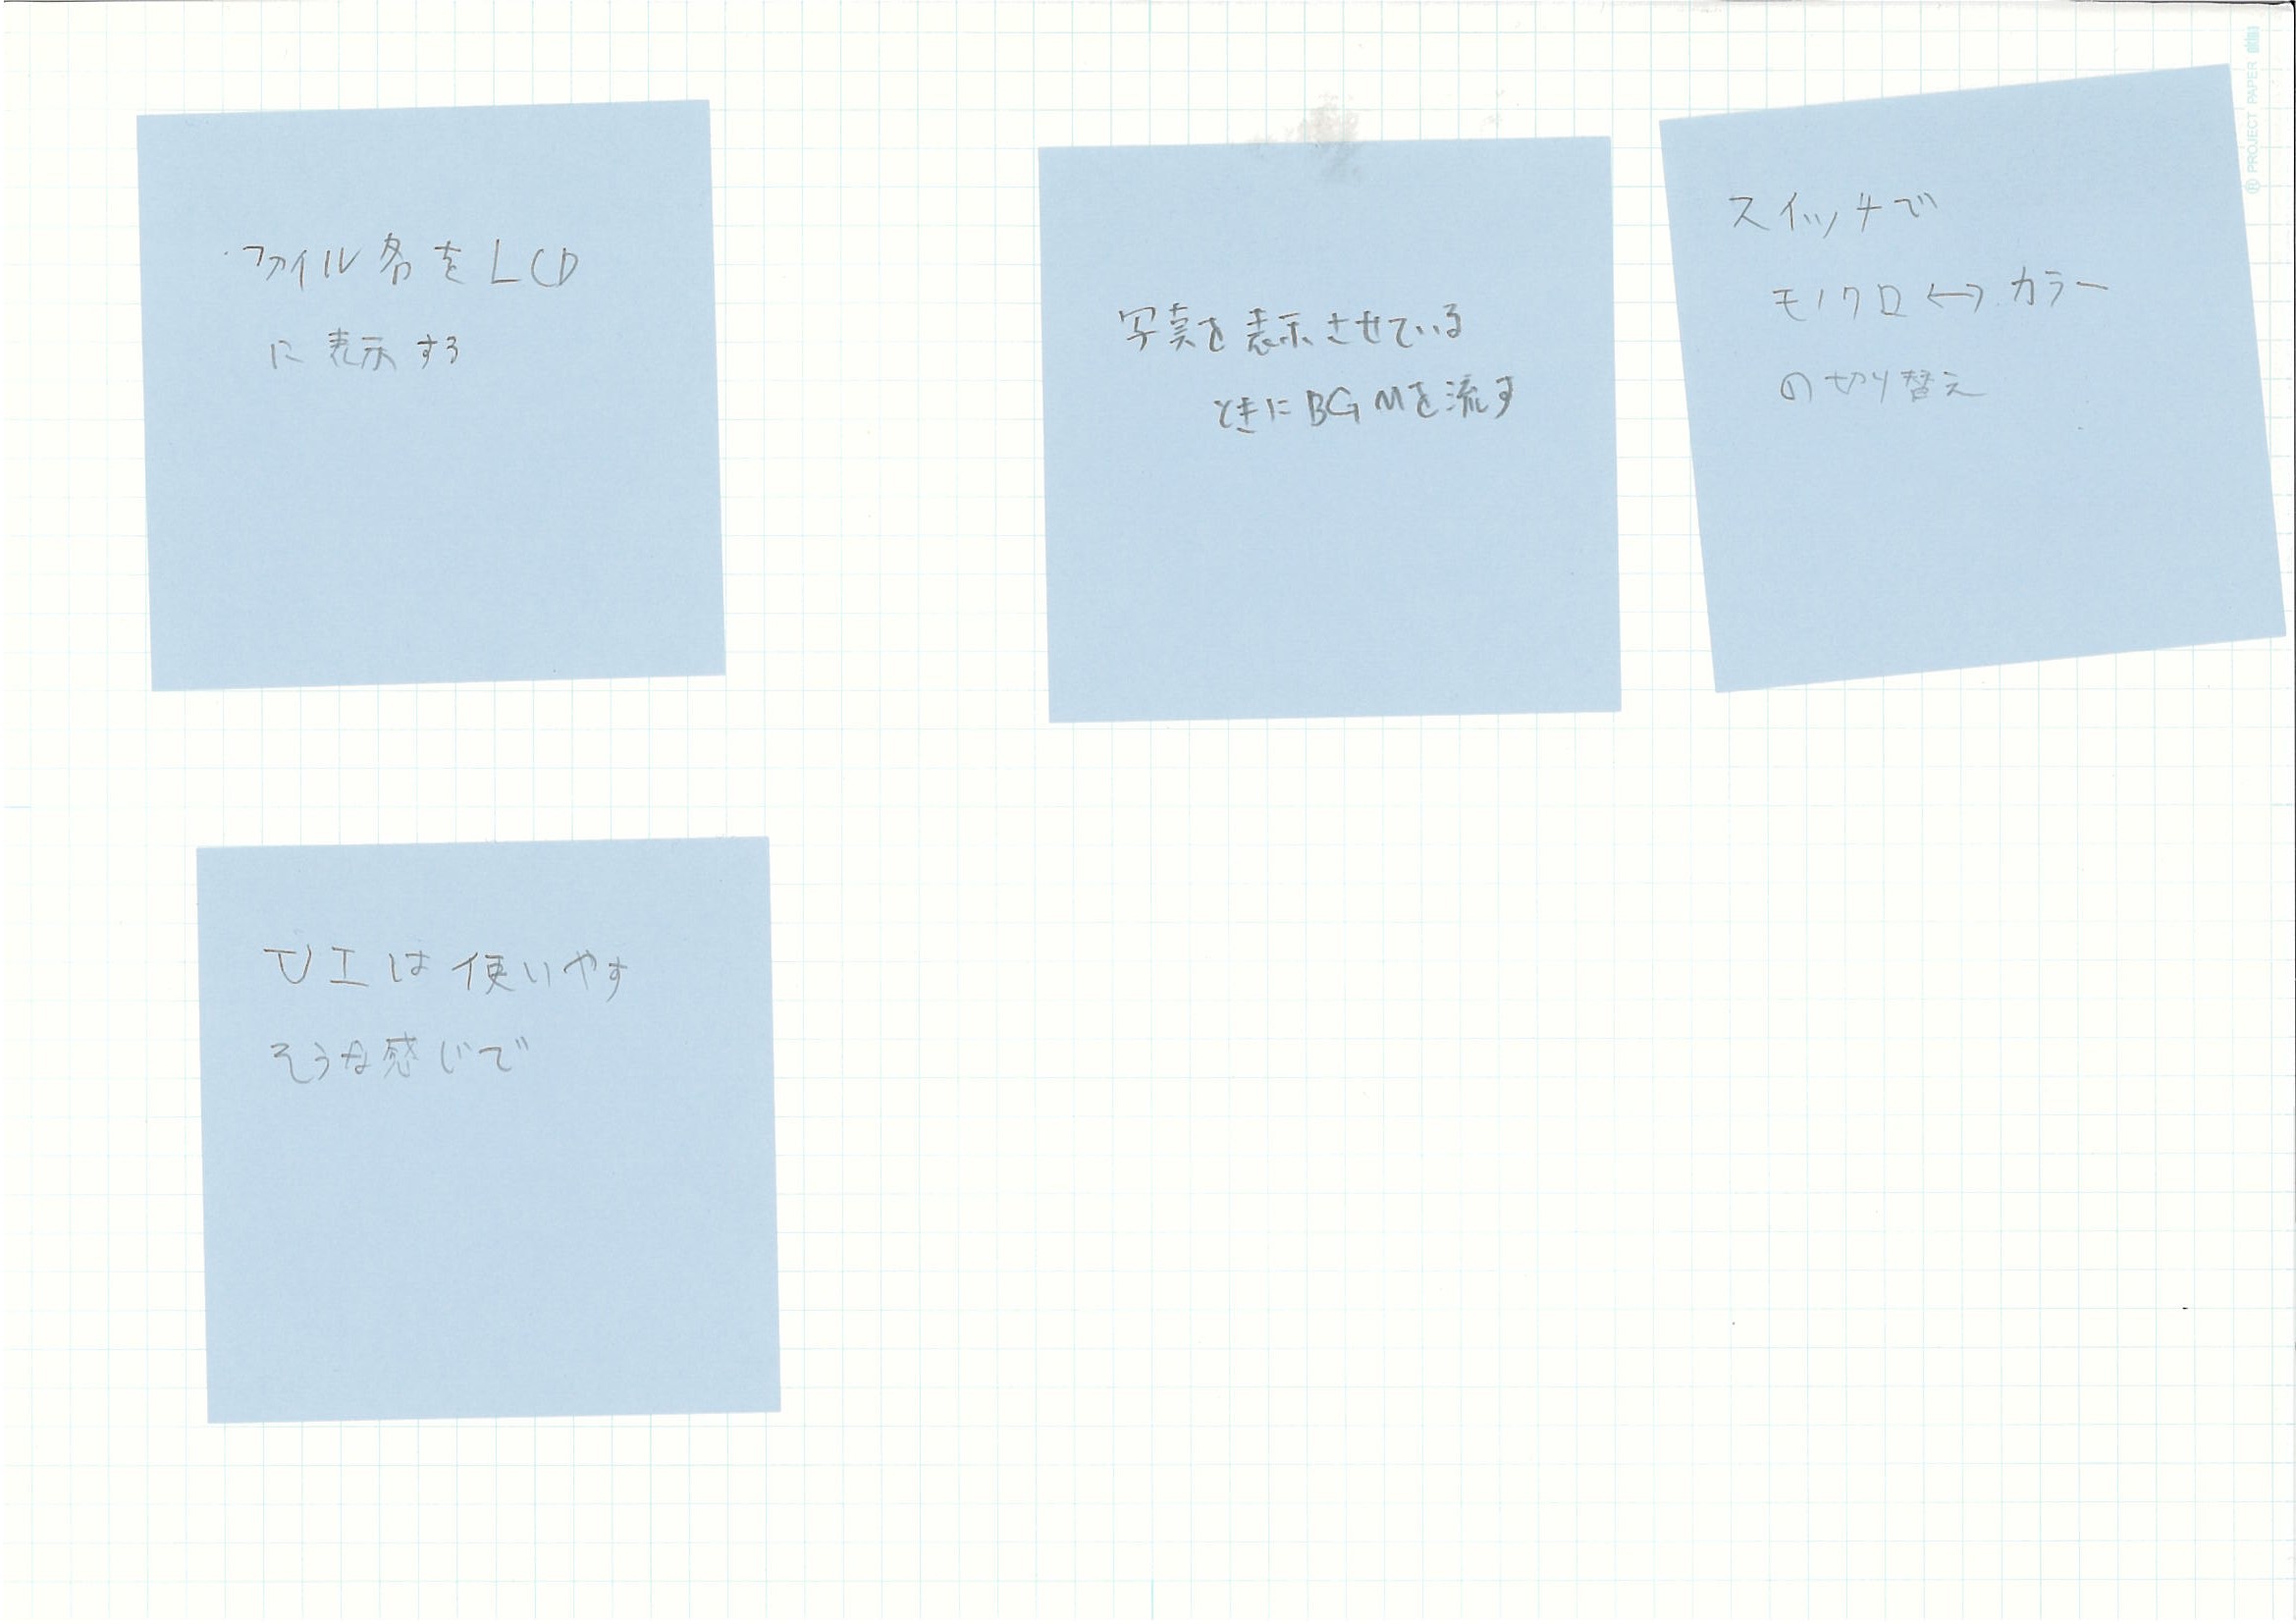 ファイル名をLCD
に表示する
写真を表示させている
ときにBGMを流す
スイッチで
モノクロ↔カラー
の切り替え
UIは使いやす
そうな感じで
PROJECT PAPER